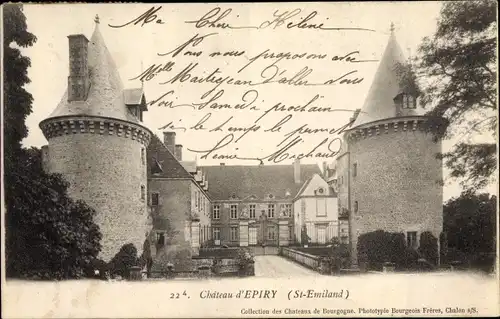 Ma Chère Hélène
Nous nous proposons avec
Mlle Maitrejean d'aller vous
voir Samedi prochain
si le temps le permet.
22A. Château d'EPIRY (St-Emiland)
Collection des Chateaux de Bourgogne. Phototypie Bourgeois Frères, Chalon s/S.